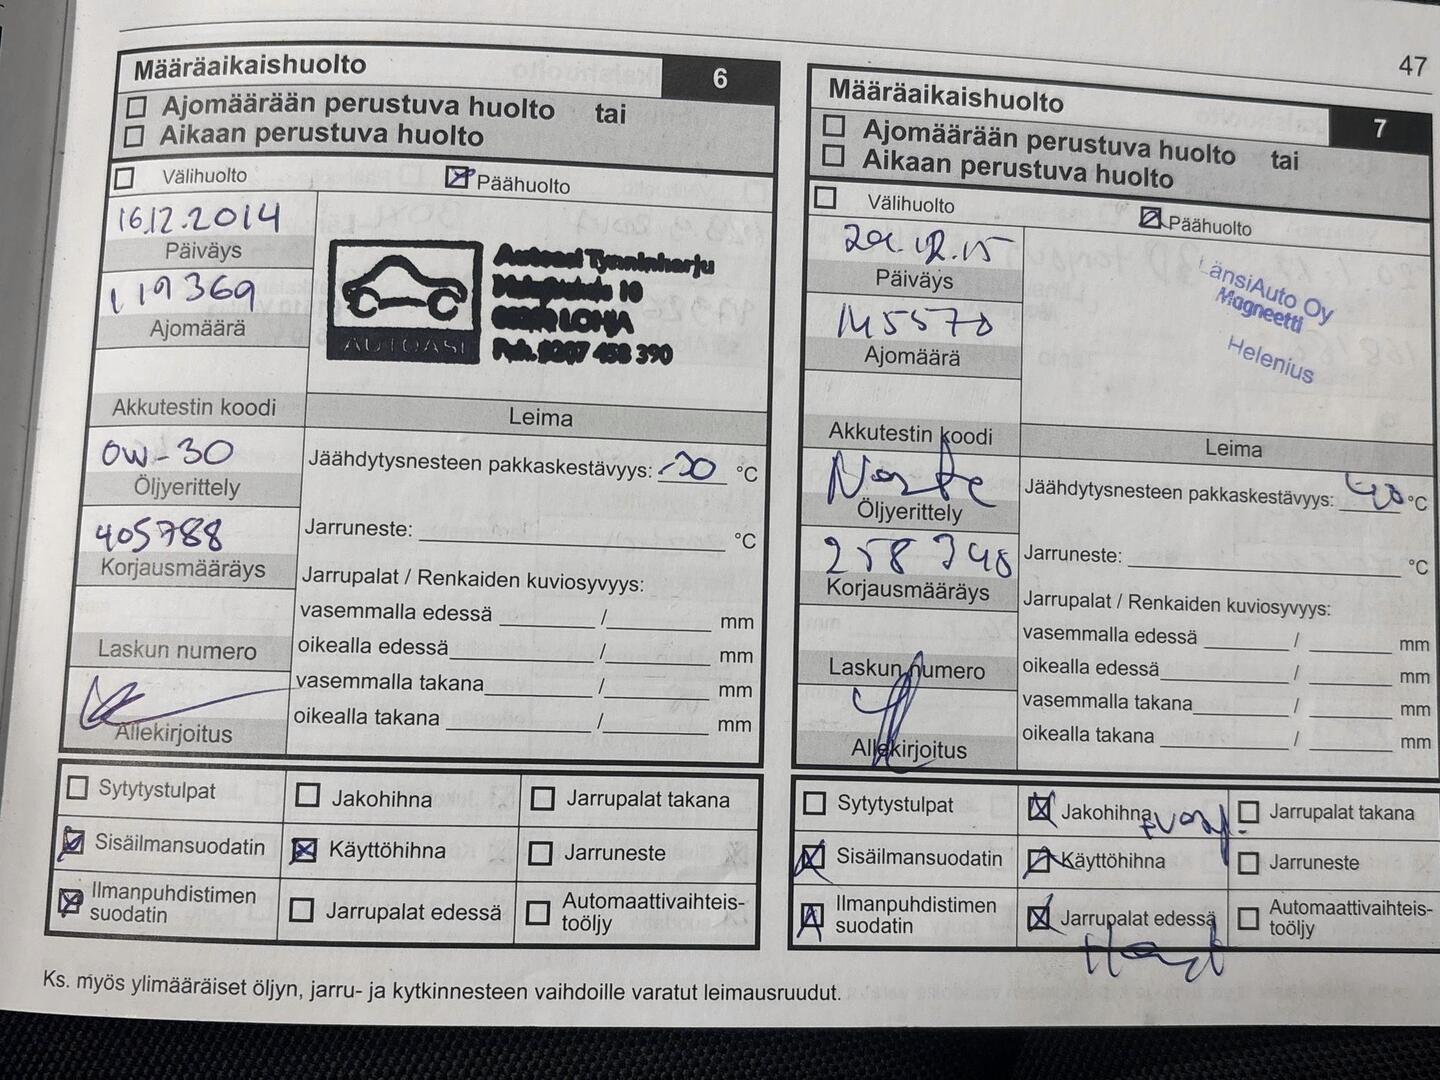 47
Määräaikaishuolto
6
Ajomäärään perustuva huolto tai
Aikaan perustuva huolto
Välihuolto
Päähuolto
16.12.2014
Päiväys
119369
Ajomäärä
Autoasi Tynninharju
10
LOHJA
Puh. 0207 458 390
AUTOASI
Akkutestin koodi
Leima
0W-30
Öljyerittely
Jäähdytysnesteen pakkaskestävyys: °C
405788
Korjausmääräys
Jarruneste: °C
Jarrupalat / Renkaiden kuviosyvyys:
vasemmalla edessä / mm
Laskun numero
oikealla edessä / mm
vasemmalla takana / mm
Allekirjoitus
oikealla takana / mm
Sytytystulpat
Jakohihna
Jarrupalat takana
Sisäilmansuodatin
Käyttöhihna
Jarruneste
Ilmanpuhdistimen
suodatin
Jarrupalat edessä
Automaattivaihteis-
toöljy
Määräaikaishuolto
7
Ajomäärään perustuva huolto tai
Aikaan perustuva huolto
Välihuolto
Päähuolto
Päiväys
145570
Ajomäärä
LänsiAuto Oy
Magneetti
Helenius
Akkutestin koodi
Leima
Öljyerittely
Jäähdytysnesteen pakkaskestävyys: °C
Korjausmääräys
Jarruneste: °C
Jarrupalat / Renkaiden kuviosyvyys:
vasemmalla edessä / mm
Laskun numero
oikealla edessä / mm
vasemmalla takana / mm
Allekirjoitus
oikealla takana / mm
Sytytystulpat
Jakohihna
Jarrupalat takana
Sisäilmansuodatin
Käyttöhihna
Jarruneste
Ilmanpuhdistimen
suodatin
Jarrupalat edessä
Automaattivaihteis-
toöljy
Ks. myös ylimääräiset öljyn, jarru- ja kytkinnesteen vaihdoille varatut leimausruudut.